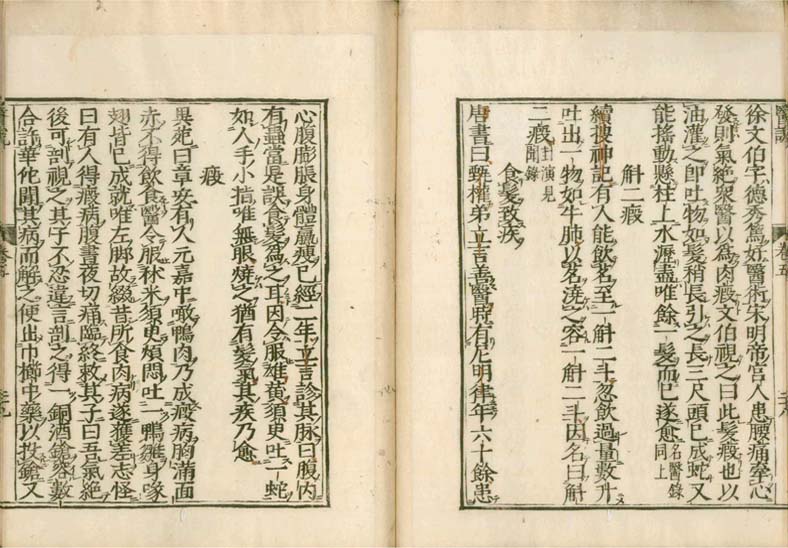 醫說
卷五
徐文伯字德秀篤好醫術宋明帝宮人患腰痛牽心
發則氣絶衆醫以爲肉瘕文伯視之曰此髮瘕也以
油灌之即吐物如髮稍長引之長三尺頭已成蛇又
能搖動懸柱上水瀝盡唯餘一髮而已遂愈名醫錄同上
斛二瘕
續搜神記有人能飲茗至一斛二斗忽飲過量數升
吐出一物如牛肺以茗澆之容一斛二斗因名曰斛
二瘕封演見聞錄
食髮致疾
唐書曰甄權弟立言善醫時有尼明律年六十餘患
心腹膨脹身體羸瘦已經二年立言診其脉曰腹內
有蟲當是誤食髮爲之耳因令服雄黃須臾吐一蛇
如人手小指唯無眼燒之猶有髮氣其疾乃愈
瘕
異苑曰章安有人元嘉中噉鴨肉乃成瘕病胸滿面
赤不得飲食醫令服秫米須臾煩悶吐一鴨雛身喙
翅皆已成就唯左脚故綴昔所食肉病遂獲差志怪
曰有人得瘕病腹晝夜切痛臨終敕其子曰吾氣絶
後可剖視之其子不忍違言剖之得一銅酒鎗容數
合許華佗聞其病而解之便出巾櫛中藥以投鎗又
醫說
卷五